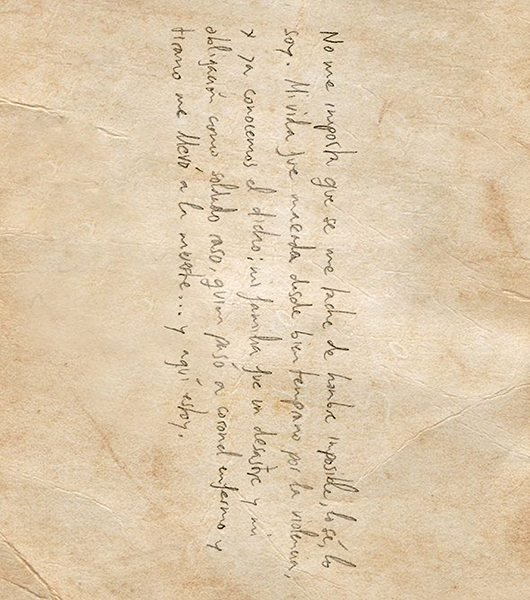 No me importa que se me tache de hombre imposible, lo sé, lo
soy. Mi vida fue marcada desde bien temprano por la violencia,
y ya conocemos el dicho; mi familia fue un desastre y mi
obligación como soldado raso, quien pasó a coronel enfermo y
tirano me llevó a la muerte... y aquí estoy.